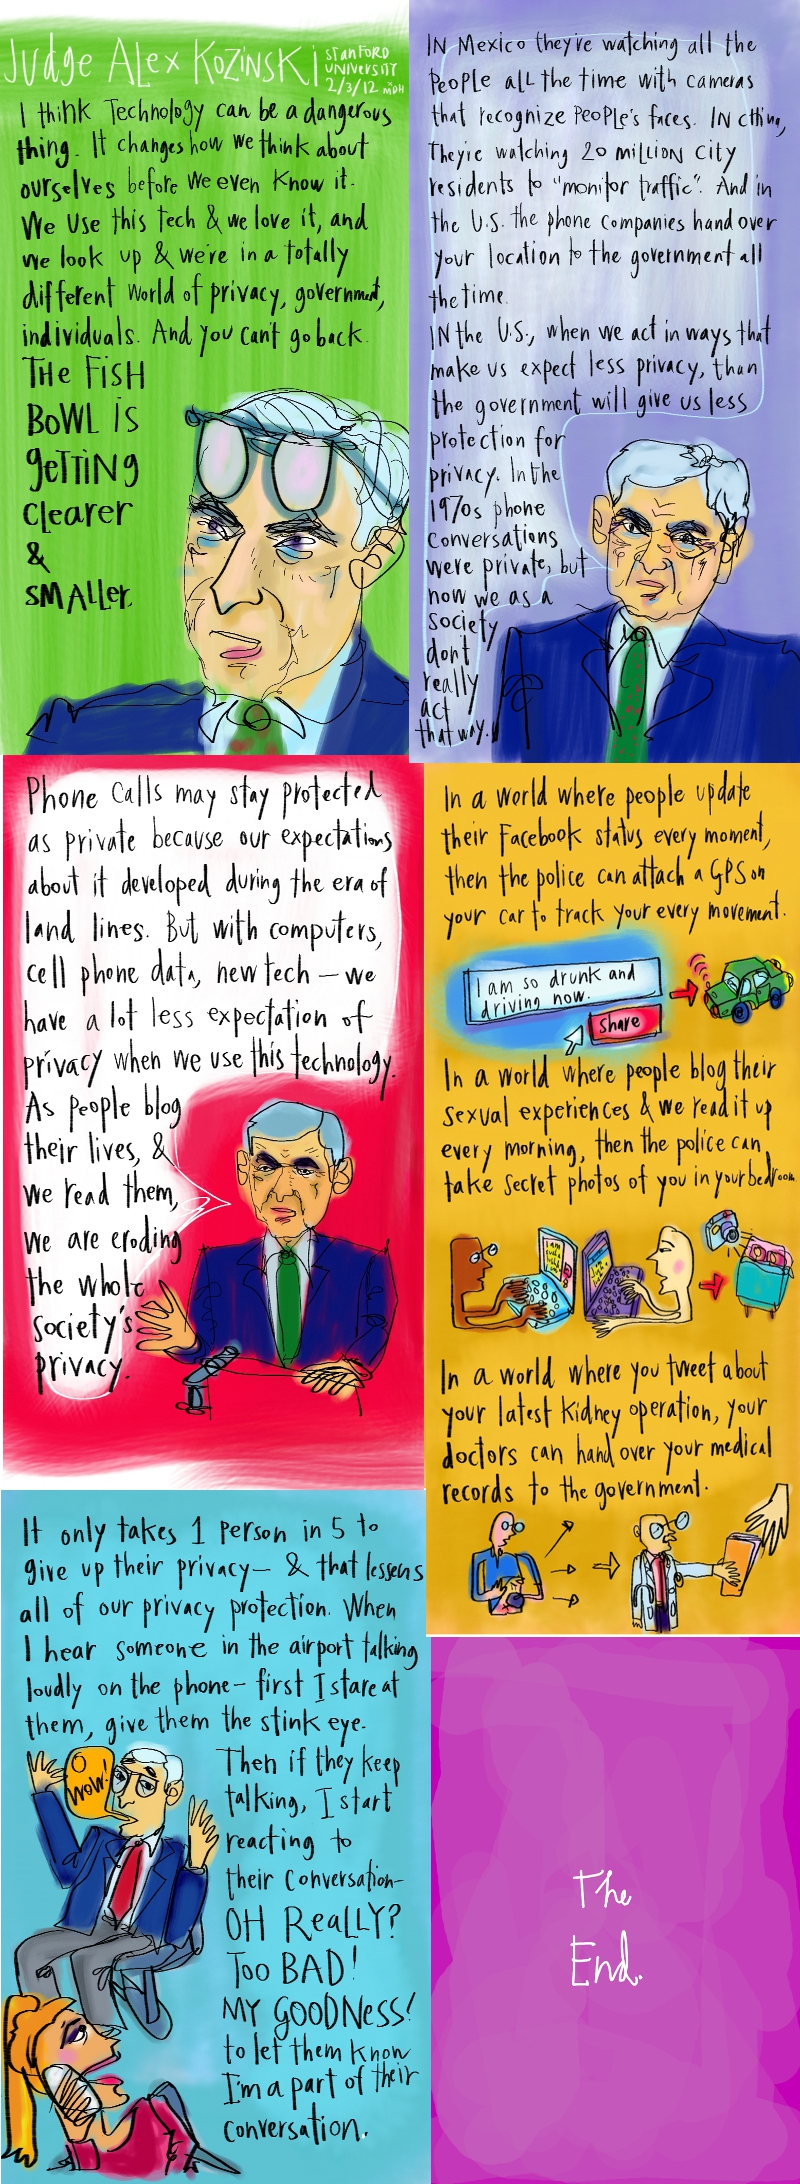 Judge Alex Kozinski
Stanford
University
2/3/12 MDH
I think Technology can be a dangerous
thing. It changes how we think about
ourselves before we even know it.
We use this tech & we love it, and
we look up & we're in a totally
different world of privacy, government,
individuals. And you can't go back.
THE FISH
BOWL IS
geTTiNg
Clearer
&
SMALLer.
IN Mexico they're watching all the
people all the time with cameras
that recognize people's faces. IN China,
They're watching 20 million city
residents to "monitor traffic". And in
the U.S. the phone companies hand over
your location to the government all
the time.
IN the U.S., when we act in ways that
make us expect less privacy, than
the government will give us less
protection for
privacy. In the
1970s phone
conversations
were private, but
now we as a
society
dont
really
act
that way.
Phone calls may stay protected
as private because our expectations
about it developed during the era of
land lines. But with computers,
cell phone data, new tech – we
have a lot less expectation of
privacy when we use this technology.
As people blog
their lives, &
we read them,
we are eroding
the whole
society's
privacy.
In a world where people update
their Facebook status every moment,
then the police can attach a GPS on
your car to track your every movement.
I am so drunk and
driving now.
share
In a world where people blog their
sexual experiences & we read it up
every morning, then the police can
take secret photos of you in your bedroom
In a world where you tweet about
your latest kidney operation, your
doctors can hand over your medical
records to the government.
It only takes 1 person in 5 to
give up their privacy – & that lessens
all of our privacy protection. When
I hear someone in the airport talking
loudly on the phone – first I stare at
them, give them the stink eye.
O
WOW!
Then if they keep
talking, I start
reacting to
their conversation –
OH REALLY?
Too BAD!
MY GOODNess!
to let them know
I'm a part of their
conversation.
The
End.